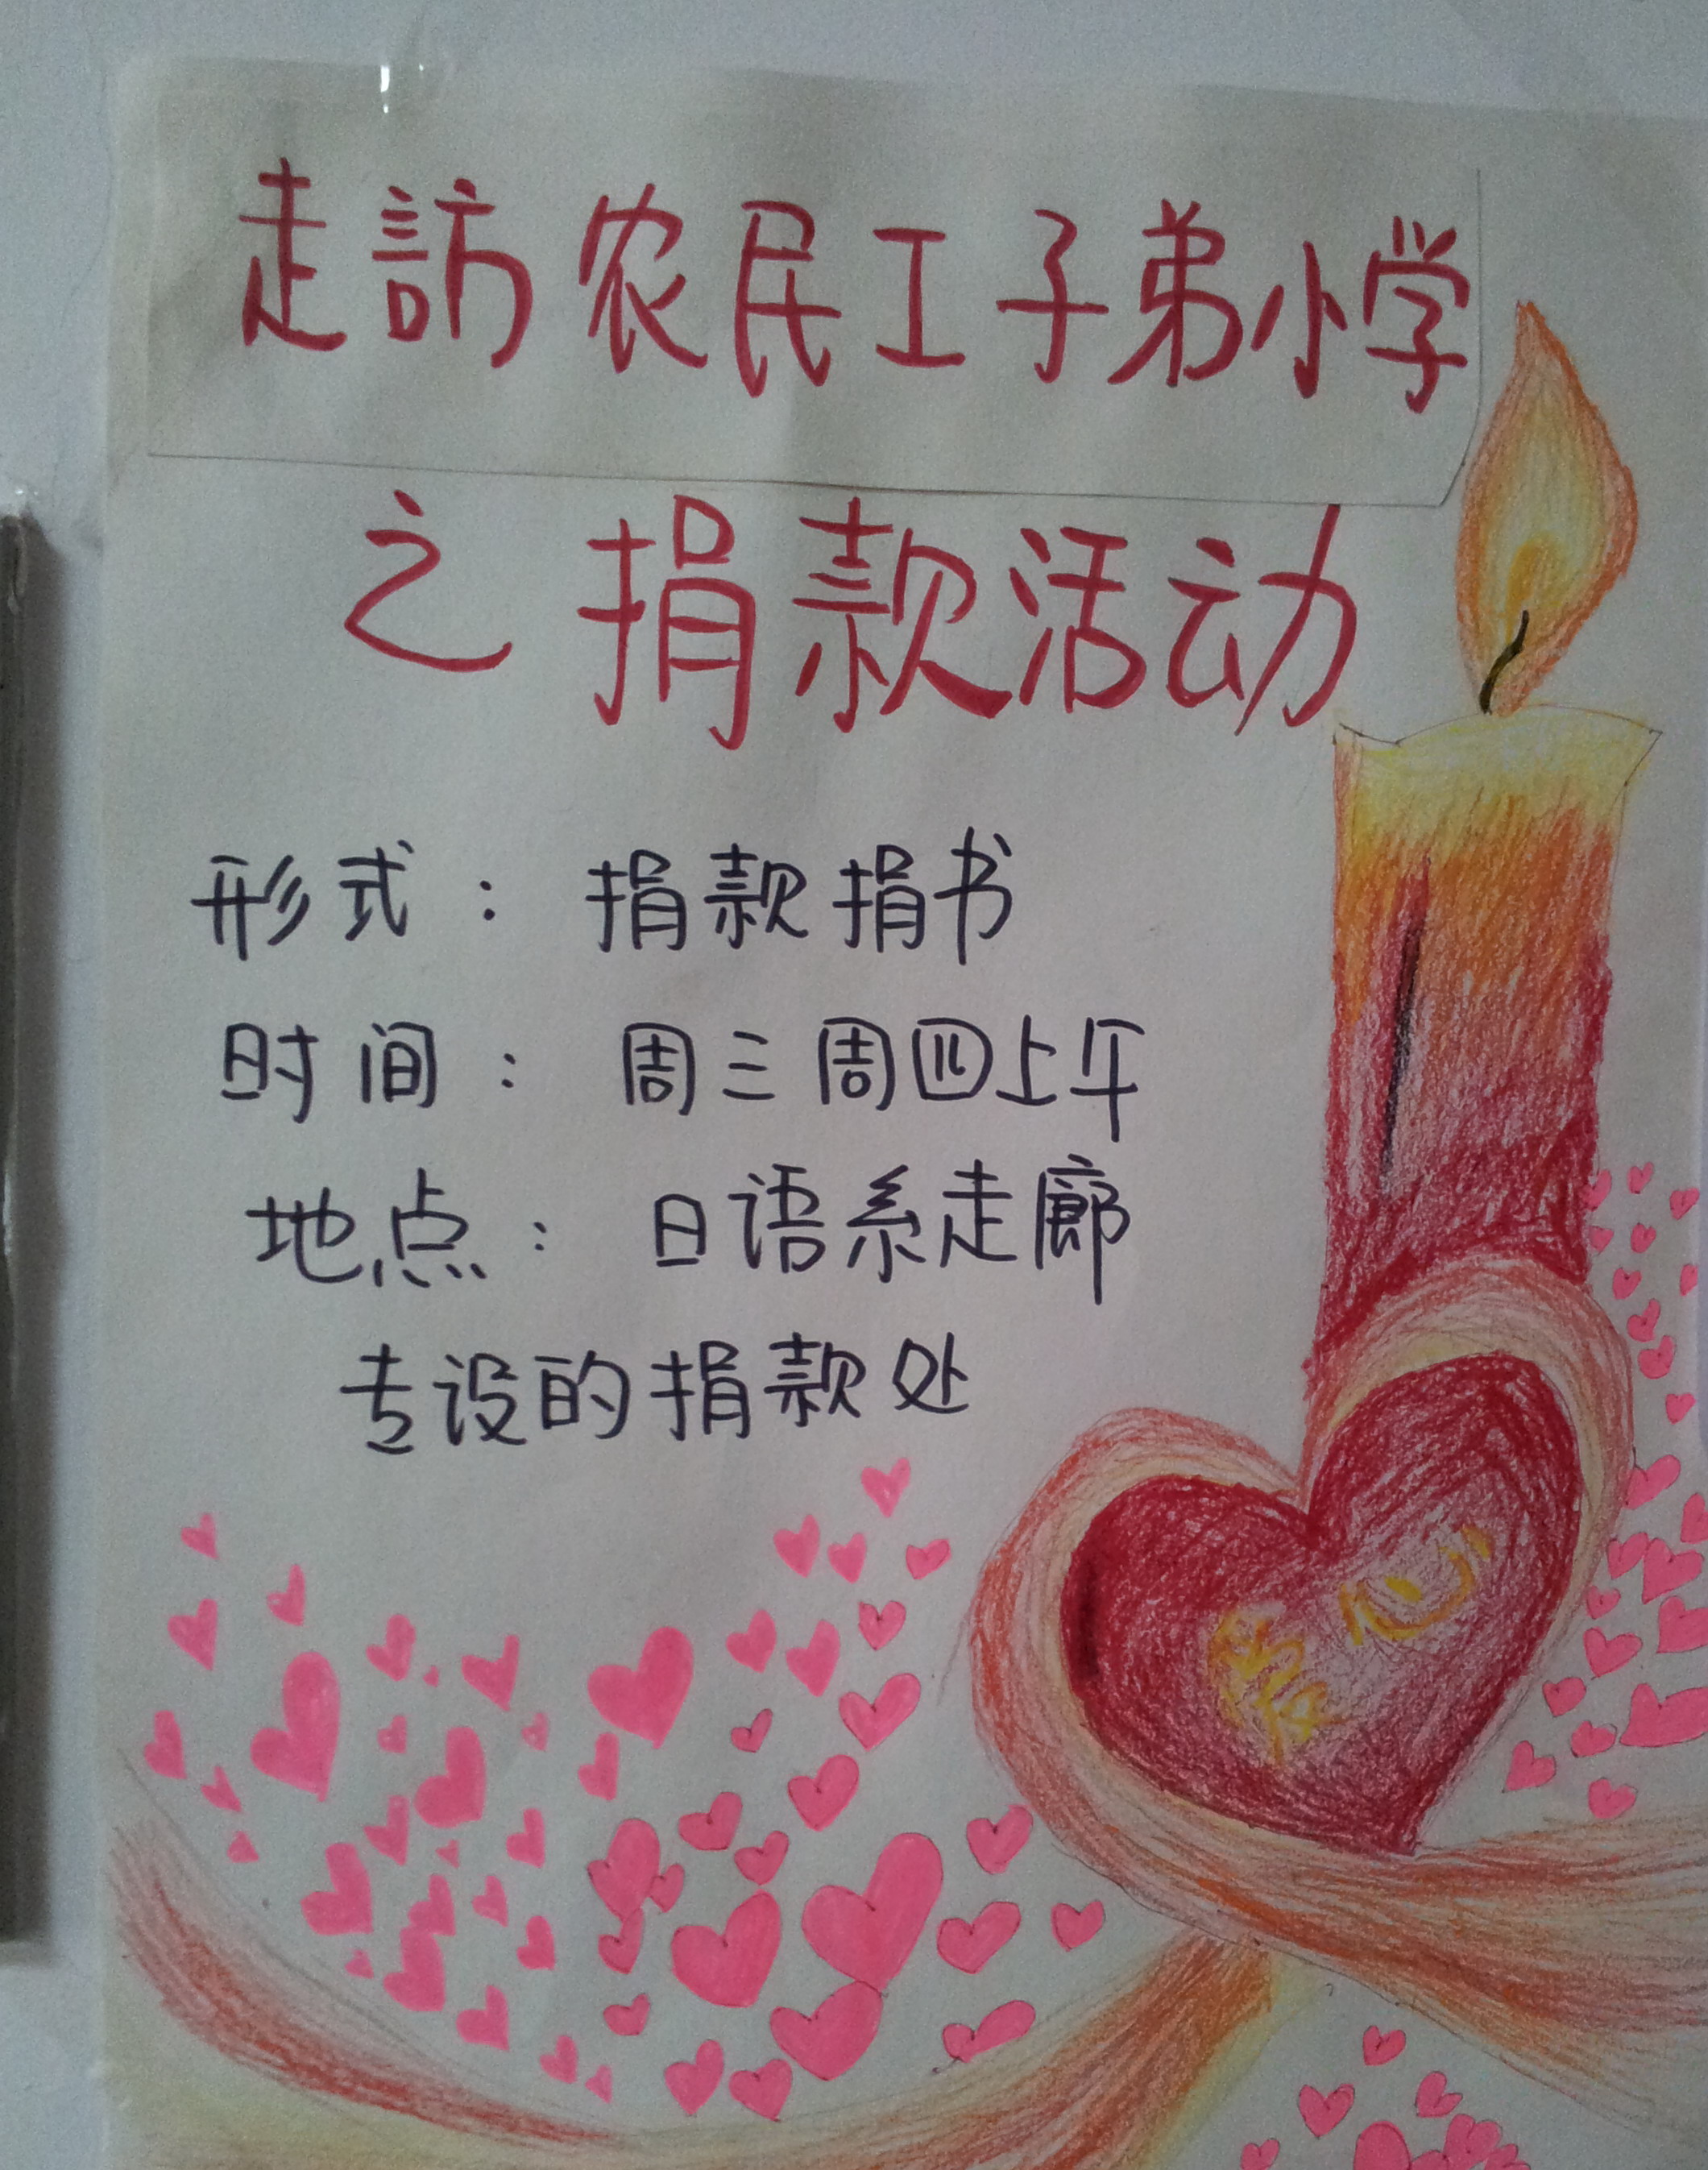 走訪农民工子弟小学
之捐款活动
形式：捐款捐书
时间：周三周四上午
地点：日语系走廊
专设的捐款处
爱心